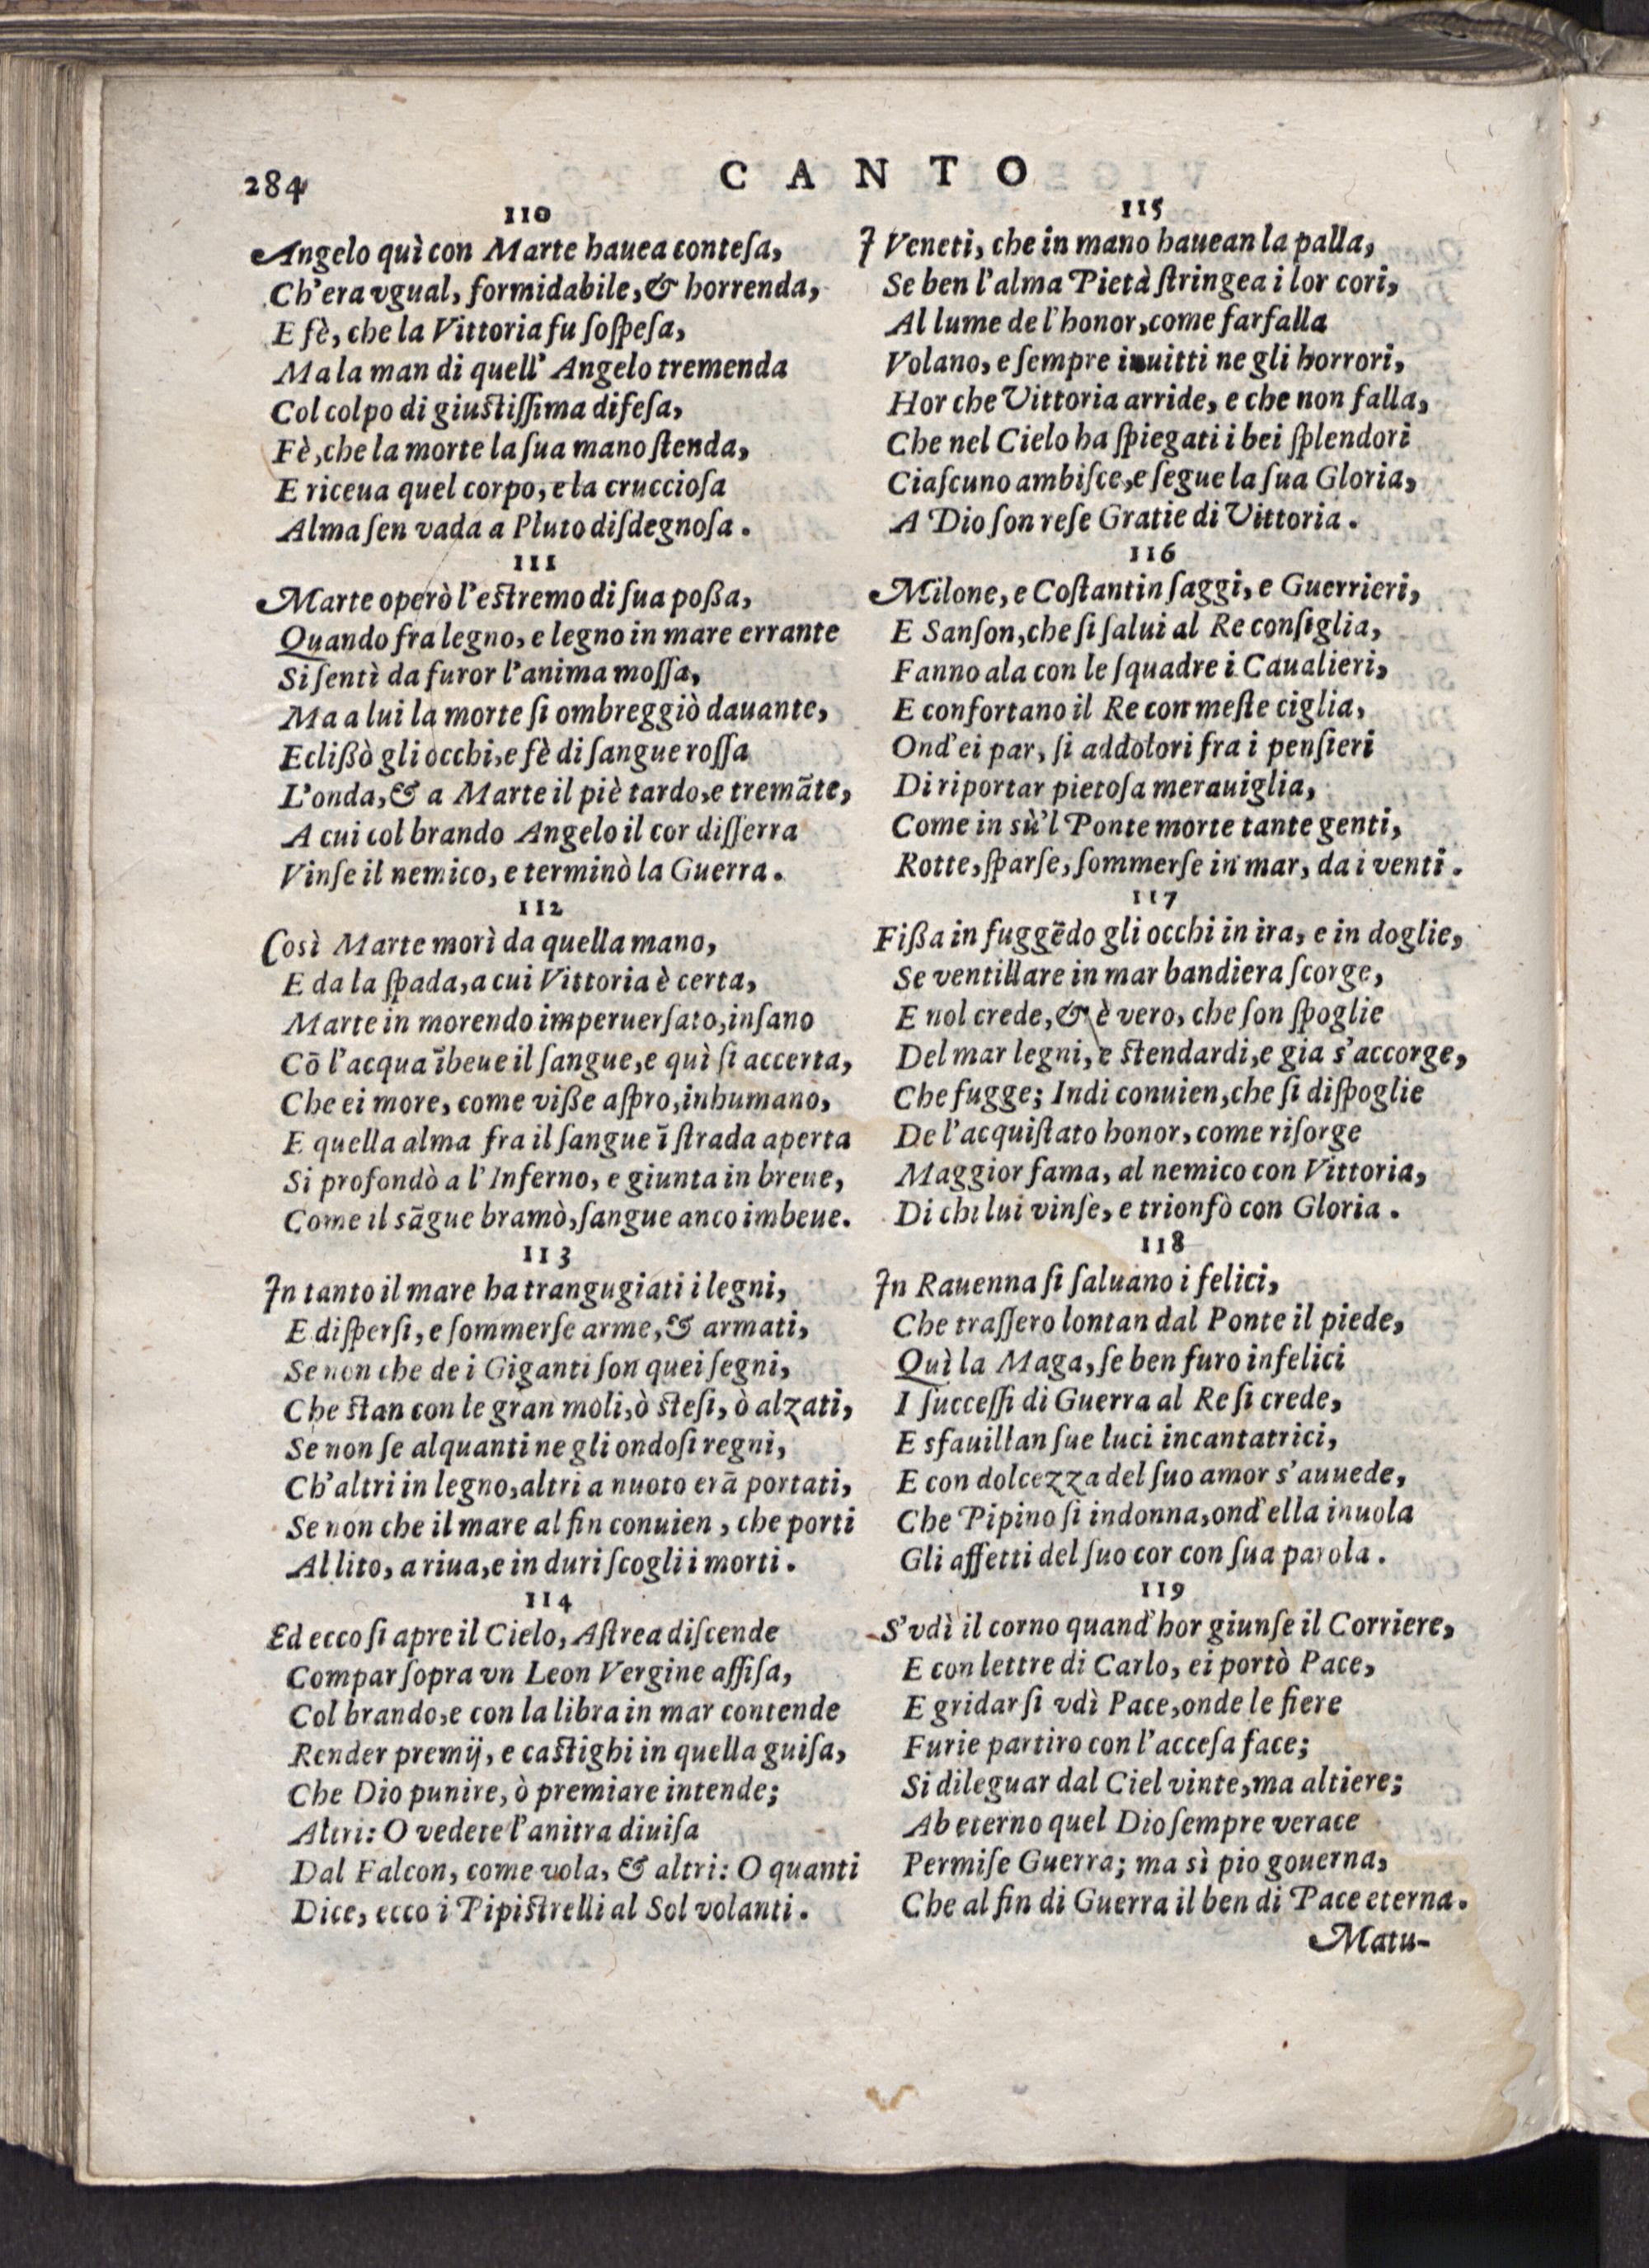 284
CANTO
110
Angelo quì con Marte hauea conteſa,
Ch'era vgual, formidabile, & horrenda,
E fè, che la Vittoria fu ſoſpeſa,
Ma la man di quell' Angelo tremenda
Col colpo di giuſtiſſima difeſa,
Fè, che la morte la ſua mano ſtenda,
E riceua quel corpo, e la crucciosa
Alma ſen vada a Pluto diſdegnoſa.
111
Marte operò l'eſtremo di ſua poßa,
Quando fra legno, e legno in mare errante
Si ſentì da furor l'anima moſſa,
Ma a lui la morte ſi ombreggiò dauante,
Eclißò gli occhi, e fè di ſangue roſſa
L'onda, & a Marte il piè tardo, e tremãte,
A cui col brando Angelo il cor diſſerra
Vinſe il nemico, e terminò la Guerra.
112
Così Marte morì da quella mano,
E da la ſpada, a cui Vittoria è certa,
Marte in morendo imperuerſato, inſano
Cõ l'acqua ĩbeue il ſangue, e quì ſi accerta,
Che ei more, come viße aſpro, inhumano,
E quella alma fra il ſangue ĩ ſtrada aperta
Si profondò a l'Inferno, e giunta in breue,
Come il sãgue bramò, ſangue anco imbeue.
113
In tanto il mare ha trangugiati i legni,
E diſperſi, e ſommerſe arme, & armati,
Se non che de i Giganti ſon quei ſegni,
Che ſtan con le gran moli, ò ſteſi, ò alzati,
Se non ſe alquanti ne gli ondoſi regni,
Ch'altri in legno, altri a nuoto erã portati,
Se non che il mare al fin conuien, che porti
Al lito, a riua, e in duri ſcogli i morti.
114
Ed ecco ſi apre il Cielo, Aſtrea diſcende
Compar ſopra vn Leon Vergine aſſiſa,
Col brando, e con la libra in mar contende
Render premij, e caſtighi in quella guiſa,
Che Dio punire, ò premiare intende;
Altri: O vedete l'anitra diuiſa
Dal Falcon, come vola, & altri: O quanti
Dice, ecco i Pipiſtrelli al Sol volanti.
115
I Veneti, che in mano hauean la palla,
Se ben l'alma Pietà ſtringea i lor cori,
Al lume de l'honor, come farfalla
Volano, e ſempre inuitti ne gli horrori,
Hor che Vittoria arride, e che non falla,
Che nel Cielo ha ſpiegati i bei ſplendori
Ciaſcuno ambiſce, e ſegue la ſua Gloria,
A Dio ſon reſe Gratie di Vittoria.
116
Milone, e Coſtantin ſaggi, e Guerrieri,
E Sanſon, che ſi ſalui al Re conſiglia,
Fanno ala con le ſquadre i Caualieri,
E confortano il Re con meſte ciglia,
Ond'ei par, ſi addolori fra i penſieri
Di riportar pietoſa merauiglia,
Come in sù'l Ponte morte tante genti,
Rotte, ſparſe, ſommerſe in mar, da i venti.
117
Fißa in fuggẽdo gli occhi in ira, e in doglie,
Se ventillare in mar bandiera ſcorge,
E nol crede, & è vero, che ſon ſpoglie
Del mar legni, e ſtendardi, e gia s'accorge,
Che fugge; Indi conuien, che ſi diſpoglie
De l'acquiſtato honor, come riſorge
Maggior fama, al nemico con Vittoria,
Di chi lui vinſe, e trionfò con Gloria.
118
In Rauenna ſi ſaluano i felici,
Che traſſero lontan dal Ponte il piede,
Quì la Maga, ſe ben furo infelici
I ſucceſſi di Guerra al Re ſi crede,
E sfauillan ſue luci incantatrici,
E con dolcezza del ſuo amor s'auuede,
Che Pipino ſi indonna, ond'ella inuola
Gli affetti del ſuo cor con ſua parola.
119
S'vdì il corno quand'hor giunſe il Corriere,
E con lettre di Carlo, ei portò Pace,
E gridar ſi vdì Pace, onde le fiere
Furie partiro con l'acceſa face;
Si dileguar dal Ciel vinte, ma altiere;
Ab eterno quel Dio ſempre verace
Permiſe Guerra; ma sì pio gouerna,
Che al fin di Guerra il ben di Pace eterna.
Matu-